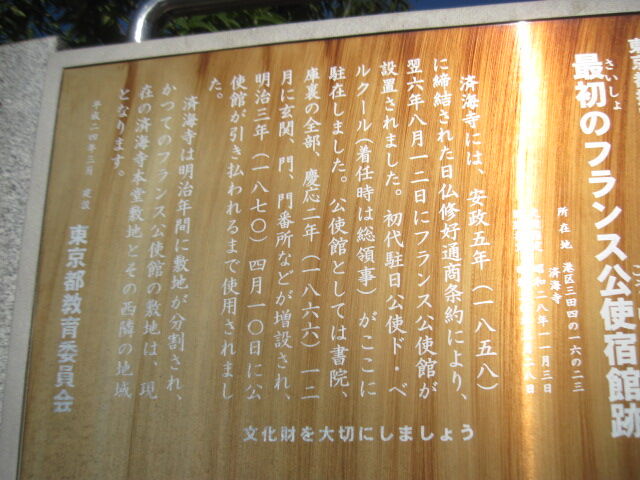 最初のフランス公使宿館跡
さいしょ
所在地 港区三田四の一六の二三
済海寺
昭和二八年一一月三日
済海寺には、安政五年（一八五八）
に締結された日仏修好通商条約により、
翌六年八月一二日にフランス公使館が
設置されました。初代駐日公使ド・ベ
ルクール（着任時は総領事）がここに
駐在しました。公使館としては書院、
庫裏の全部、慶応二年（一八六六）一二
月に玄関、門、門番所などが増設され、
明治三年（一八七〇）四月一〇日に公
使館が引き払われるまで使用されまし
た。
済海寺は明治年間に敷地が分割され、
かつてのフランス公使館の敷地は、現
在の済海寺本堂敷地とその西隣の地域
となります。
平成二四年三月 建設
東京都教育委員会
文化財を大切にしましょう